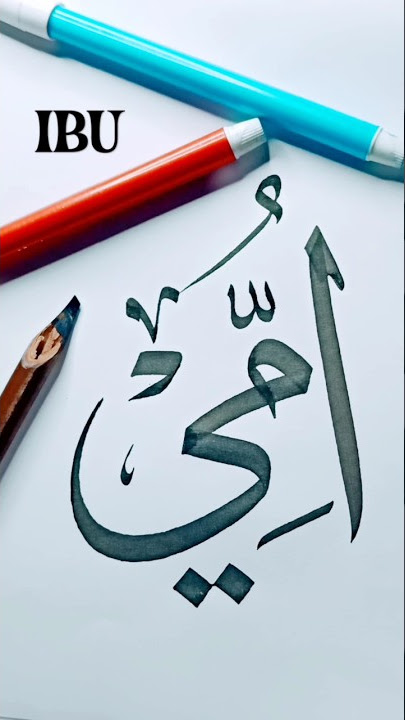 IBU
اُمِّي